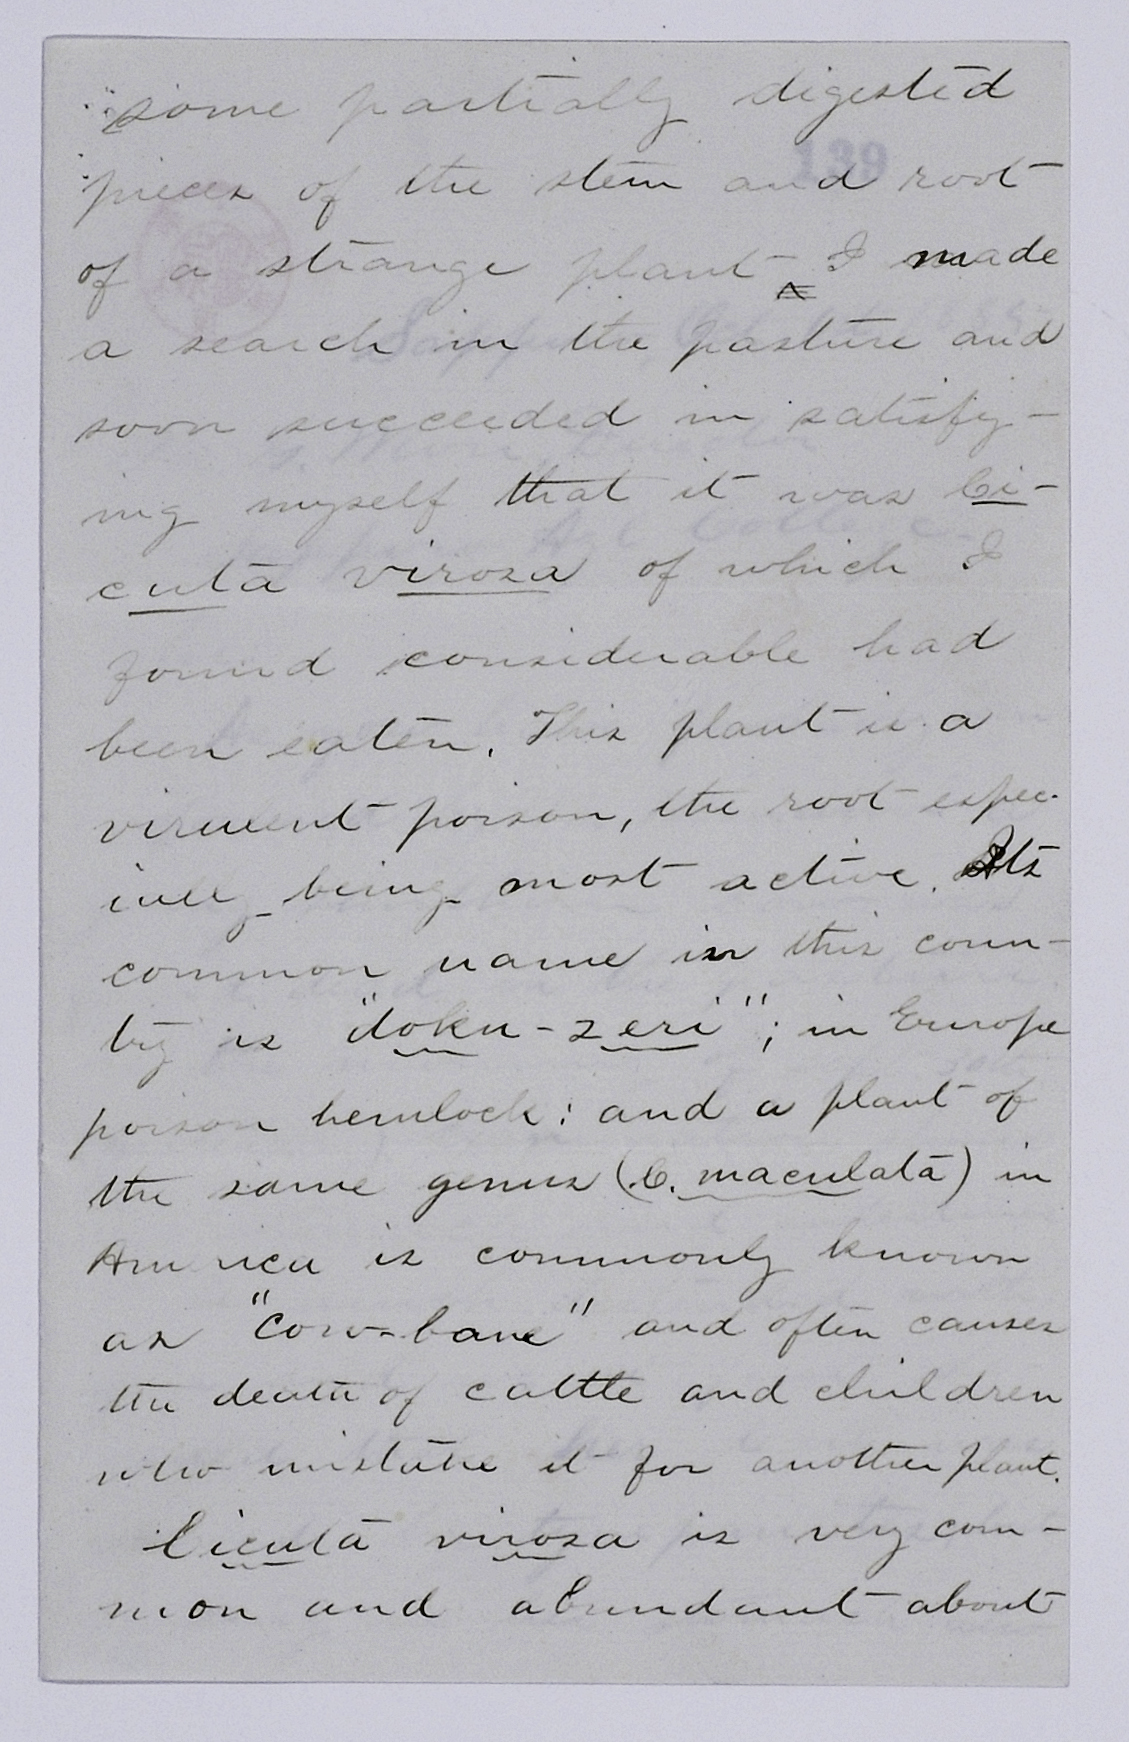 some partially digested
139
pieces of the stem and root
of a strange plant – I made
a search in the pasture and
soon succeeded in satisfy-
ing myself that it was Ci-
cuta virosa of which I
found considerable had
been eaten. This plant is a
virulent poison, the root espec-
ially being most active. Its
common name in this coun-
try is "doku-zeri"; in Europe
poison hemlock: and a plant of
the same genus (C. maculata) in
America is commonly known
as "Cow-bane" and often causes
the death of cattle and children
who mistake it for another plant.
Cicuta virosa is very com-
mon and abundant about